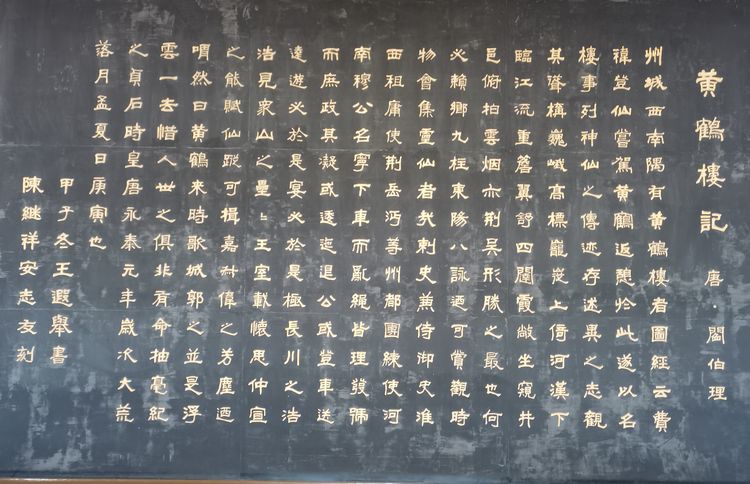 黃鶴樓記
唐·閻伯理
州城西南隅有黃鶴樓者圖經云費
禕登仙嘗駕黃鶴返憩於此遂以名
樓事列神仙之傳迹存述異之志觀
其聳構巍峨高標巃嵸上倚河漢下
臨江流重簷翼舒四闥霞敞坐窺井
邑俯拍雲烟亦荊吳形勝之最也何
必賴鄉九柱東陽八詠迺可賞觀時
物會集靈仙者哉刺史兼侍御史淮
西租庸使荊岳沔等州都團練使河
南穆公名寧下車而亂繩皆理發號
而庶政其凝或逶迤退公或登車送
遠遊必於是宴必於是極長川之浩
浩見眾山之壘〻王室載懷思仲宣
之能賦仙蹤可揖嘉叔偉之芳塵迺
喟然曰黃鶴來時歌城郭之並是浮
雲一去惜人世之俱非有命抽毫紀
之貞石時皇唐永泰元年歲次大荒
落月孟夏日庚寅也
甲子冬王遐舉書
陳継祥安志友刻